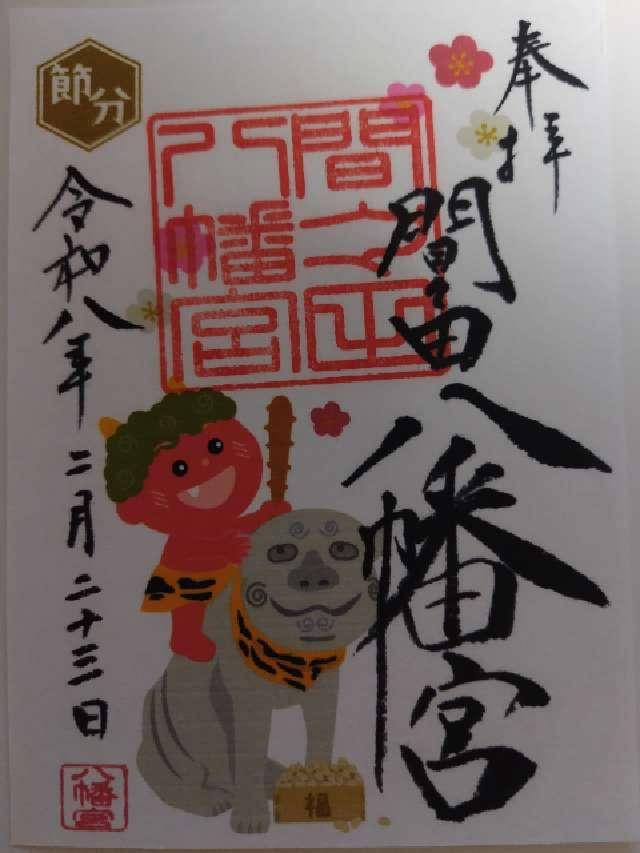 奉拝
間々田八幡宮
間々田
八幡宮
節分
令和八年二月二十三日
八幡宮
福